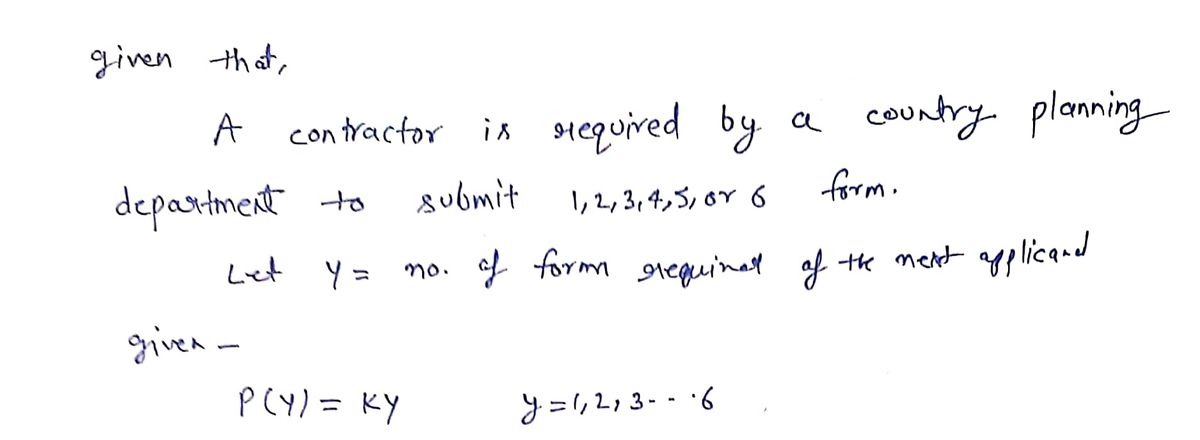 given that,
A contractor is required by a country planning
department to submit 1,2,3,4,5, or 6 form.
Let Y = no. of form required of the next applicand
given -
P(Y) = KY y=1,2,3--·6